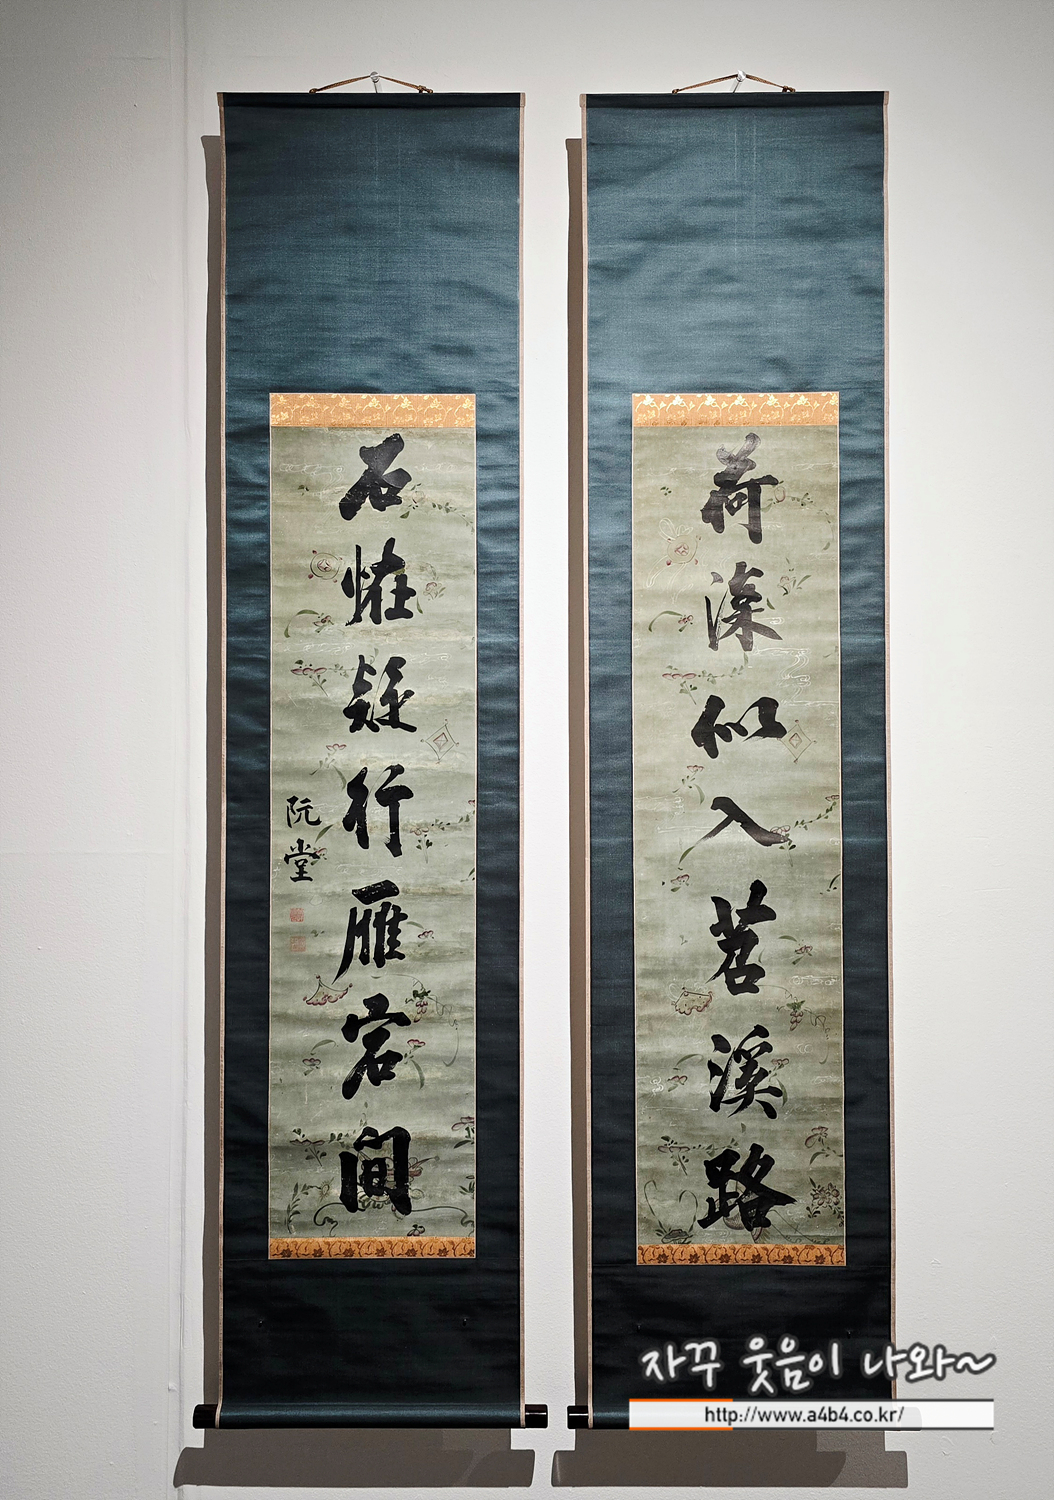 荷深似入苕溪路
石怪疑行雁宕間
阮堂
자꾸 웃음이 나와~
http://www.a4b4.co.kr/